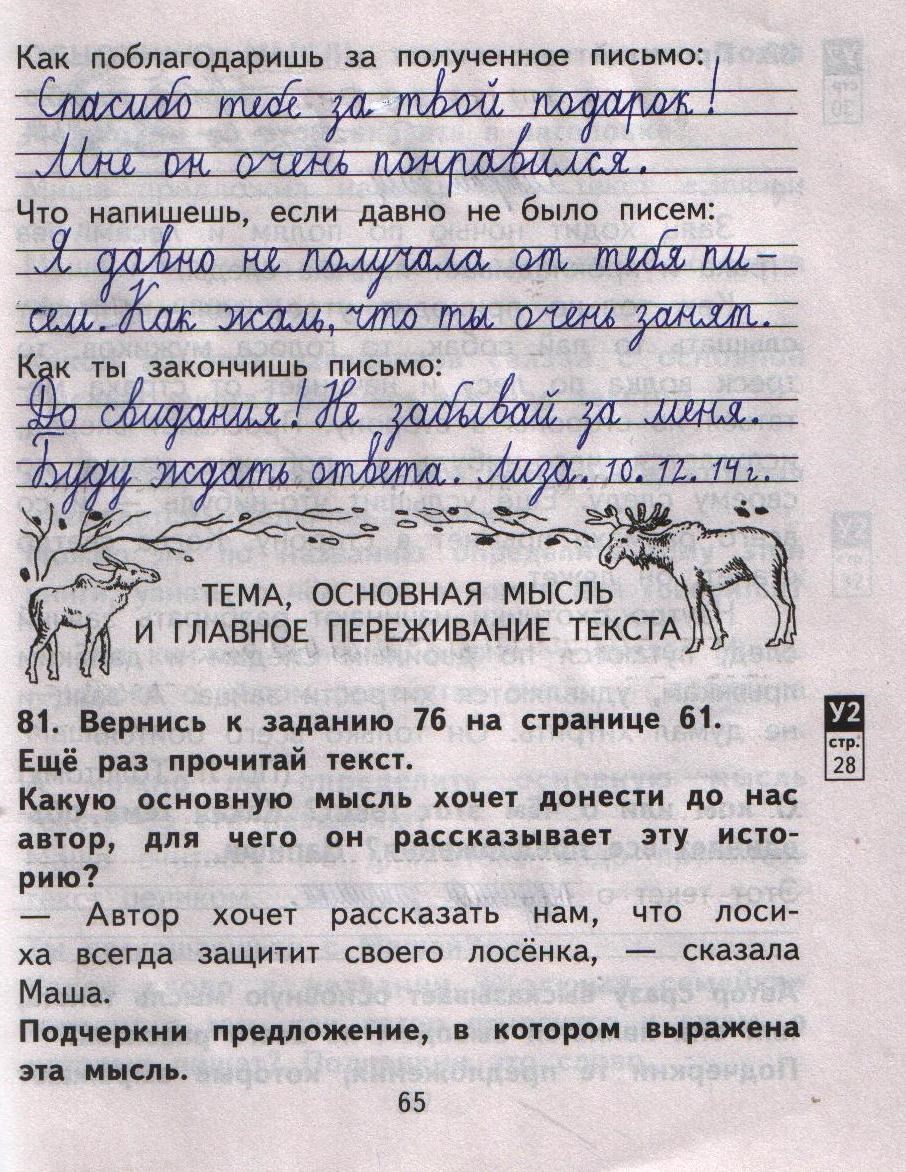 Как поблагодаришь за полученное письмо:
Спасибо тебе за твой подарок!
Мне он очень понравился.
Что напишешь, если давно не было писем:
Я давно не получала от тебя пи-
сем. Как жаль, что ты очень занят.
Как ты закончишь письмо:
До свидания! Не забывай за меня.
Буду ждать ответа. Лиза. 10.12.14г.
ТЕМА, ОСНОВНАЯ МЫСЛЬ
И ГЛАВНОЕ ПЕРЕЖИВАНИЕ ТЕКСТА
81. Вернись к заданию 76 на странице 61.
Ещё раз прочитай текст.
У2
стр.
28
Какую основную мысль хочет донести до нас
автор, для чего он рассказывает эту исто-
рию?
— Автор хочет рассказать нам, что лоси-
ха всегда защитит своего лосёнка, — сказала
Маша.
Подчеркни предложение, в котором выражена
эта мысль.
65